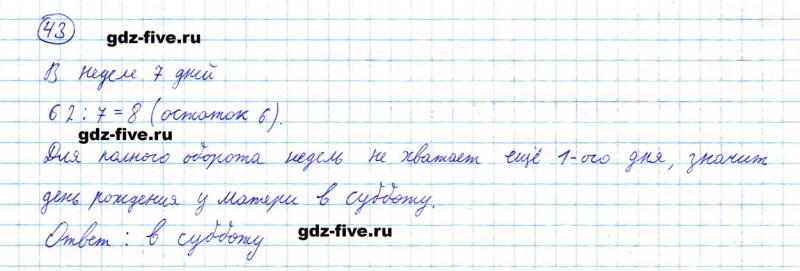 43
gdz-five.ru
В неделе 7 дней
62 : 7 = 8 (остаток 6).
gdz-five.ru
Для полного оборота недель не хватает ещё 1-ого дня, значит
день рождения у матери в субботу.
Ответ : в субботу
gdz-five.ru